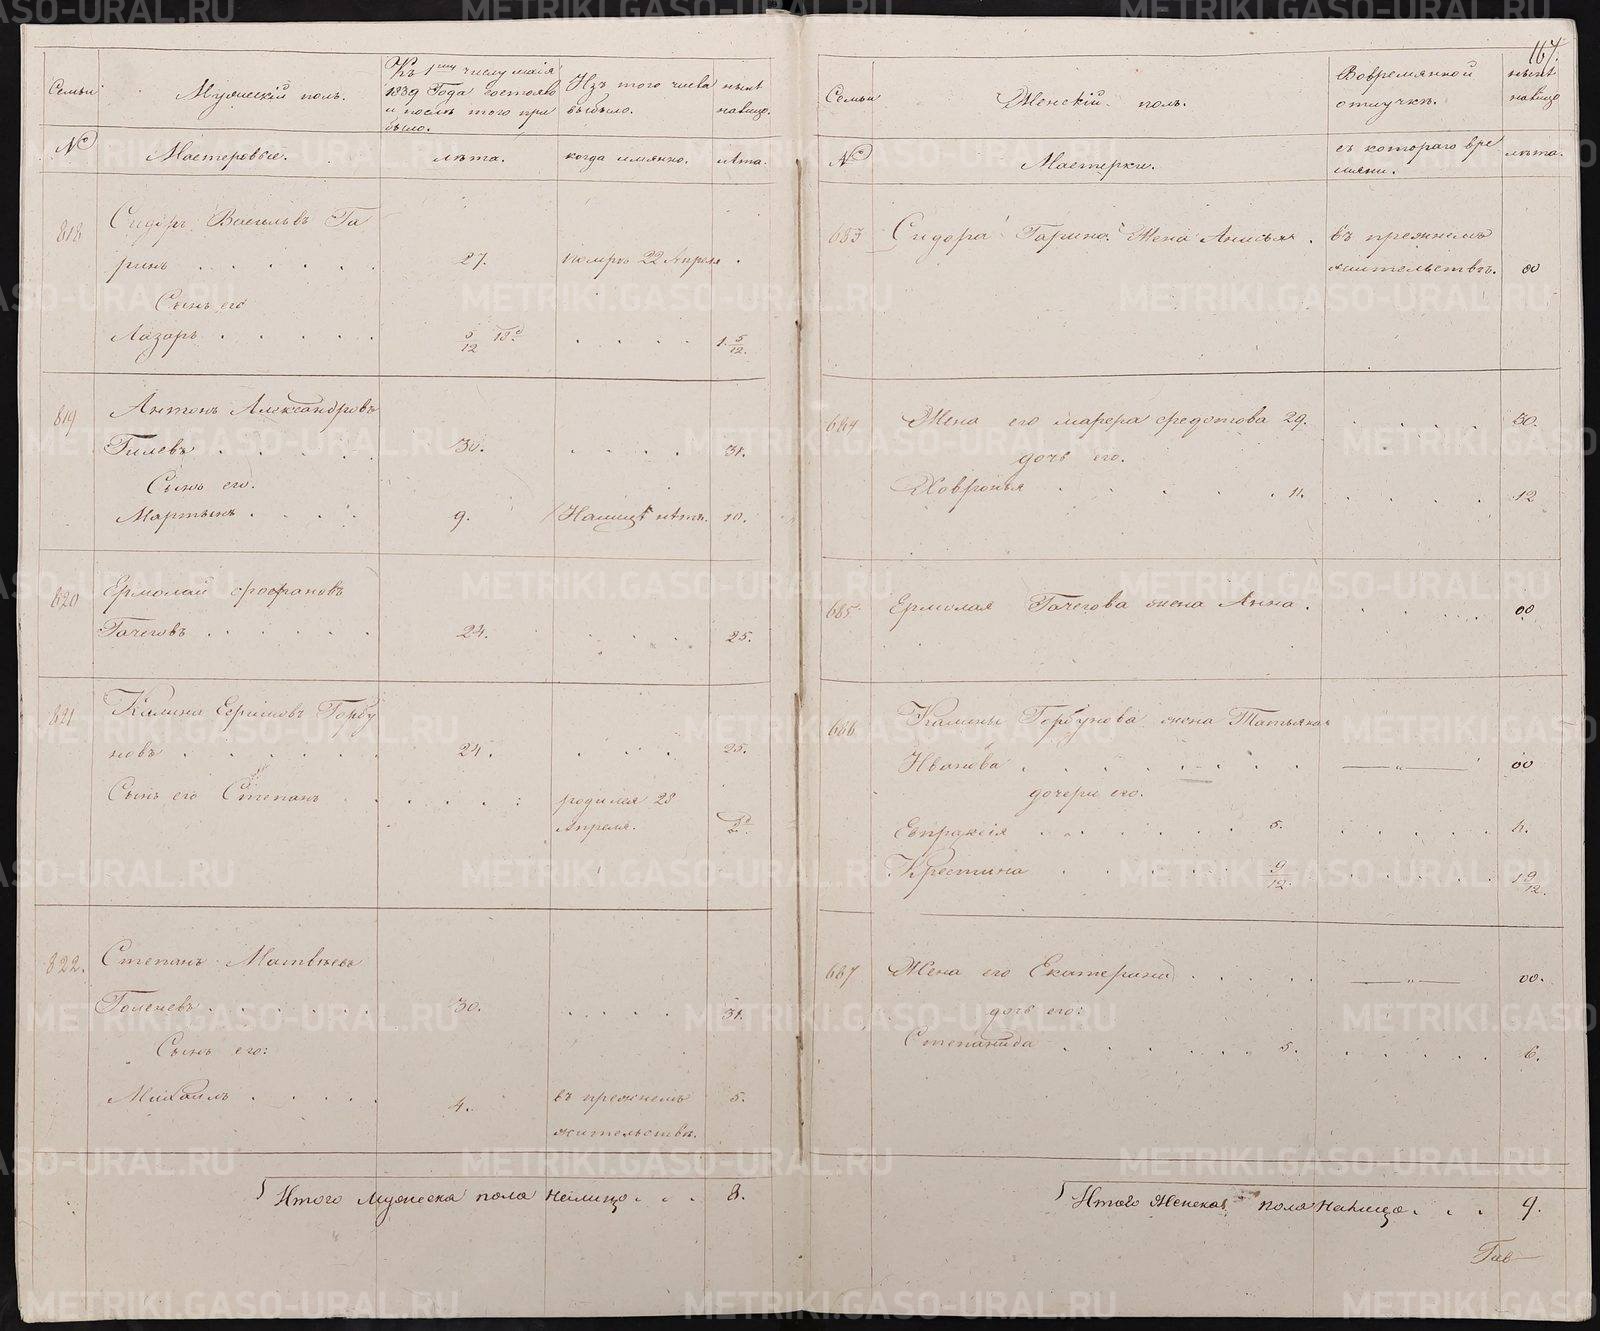 167.
Семьи
Мужескій полъ.
Къ 1му числу маія
1839 Года состояло
и послѣ того при
было.
Изъ того числа
выбыло.
нынѣ
налицо.
№
Мастеровые.
лѣта.
когда имянно.
лѣта.
818
Сидоръ Васильевъ Га
ринъ . . . . . . 27. помръ 22 Апреля .
Сынъ его
Лазарь . . . . . 5/12 . . . . 1. 5/12.
819
Антонъ Александровъ
Гилевъ . . . . . 30. . . . . 31.
Сынъ его.
Мартынъ . . . . 9. 10.
820
Ермолай
Гачеговъ . . . . . . 24. . . . 25.
821
Калина Горбу
новъ . . . . . . 24. . . . 25.
Сынъ его Степанъ . . . . . родился 28
Апреля.
822.
Степанъ Матвѣевъ
Голеневъ . . . . . . 30. . . . . 31.
Сынъ его:
Михаилъ . . . . . 4. въ прежнемъ 5.
жительствѣ.
Итого Мужеска пола налицо . . . 8.
Семьи
Женскій полъ.
Вовремянной
отлучкѣ.
нынѣ
налицо
№
Мастерки.
съ котораго вре
мяни.
лѣта.
683
Сидора Гарина Жена Анисья . въ прежнемъ
жительствѣ. 00
684
Жена его 29. . . . . . 30.
дочь его.
Ховронья . . . . . . 11. . . . . 12
685.
Ермолая Гачегова жена Анна . . . . . . 00
686.
Калины Горбунова жена Татьяна
Иванова . . . . . . . . —„— 00
дочери его.
Евпраксія . . . . . . . 3. . . . . . 4.
Крестина . . . . . 9/12. . . . . . 1 9/12.
687
Жена его Екатерина . . . . . —„— 00.
дочь его:
Степанида . . . . . . . 5. . . . . . 6.
Итого Женска пола налицо . . . 9.
METRIKI.GASO-URAL.RU